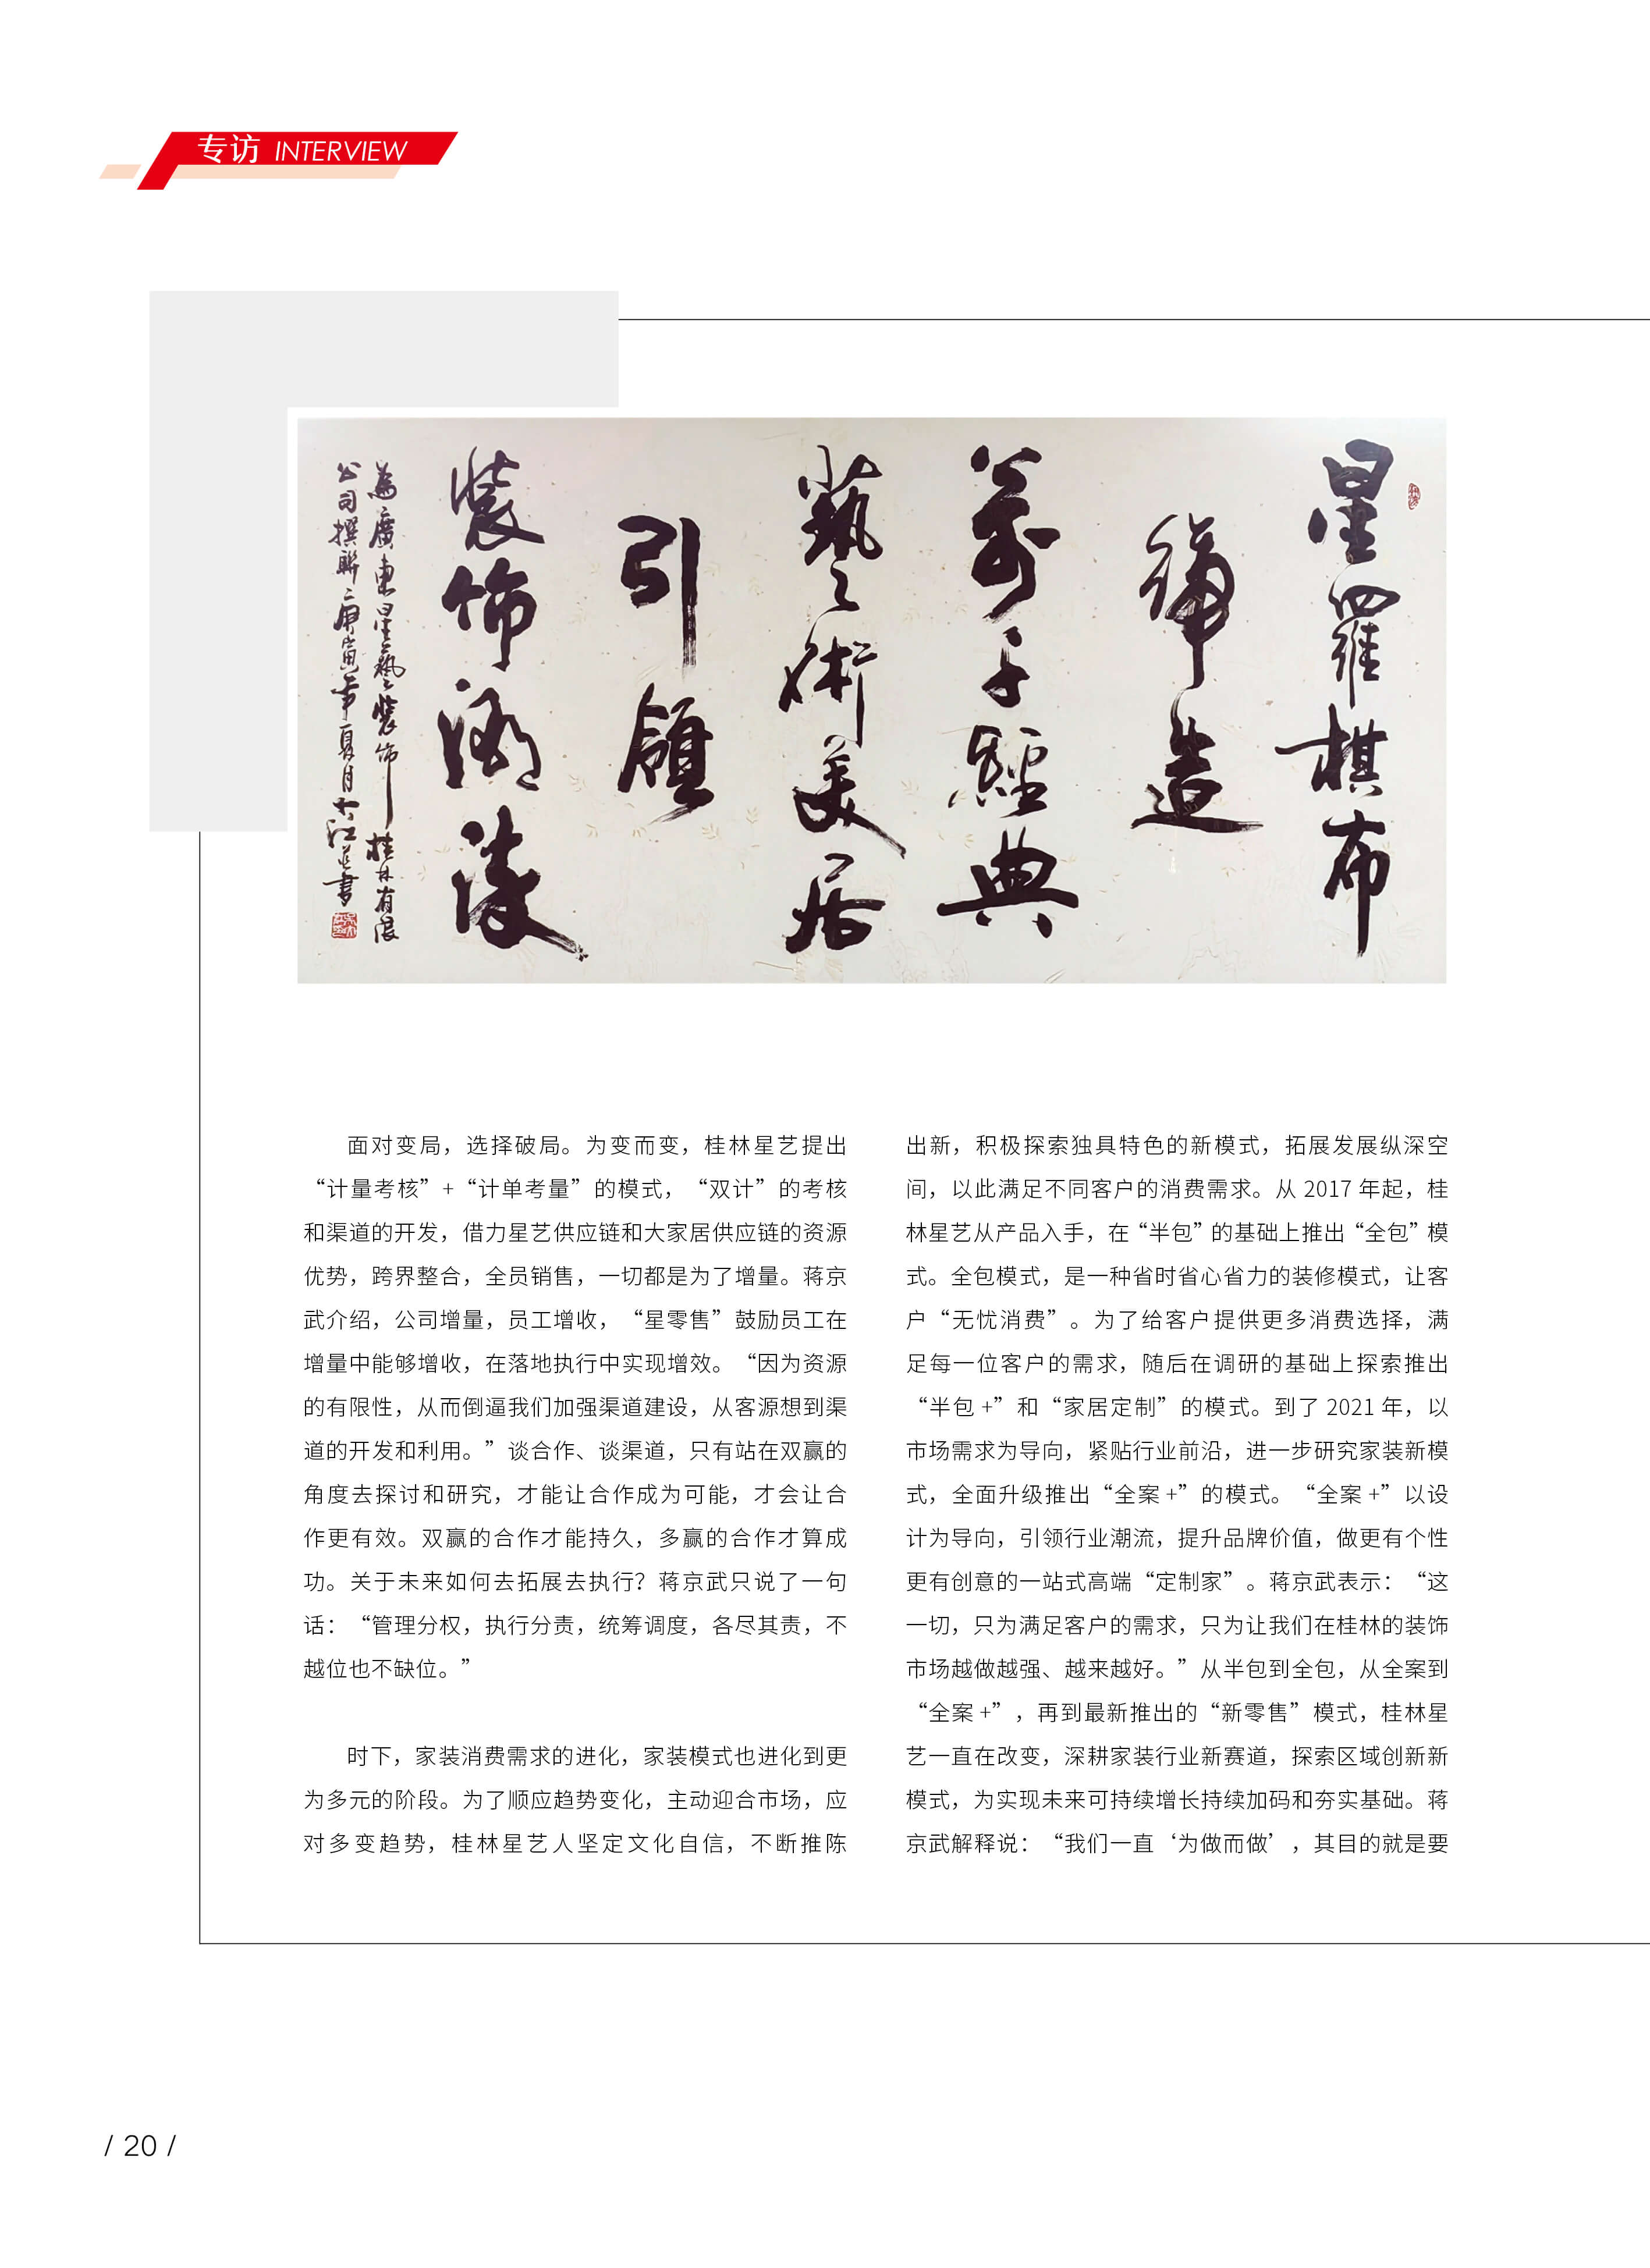 专访 INTERVIEW
星羅棋布
締造
萬千經典
藝術美居
引領
裝飾潮流
為廣東星藝裝飾桂林有限
公司撰聯庚寅年夏月大江並書
面对变局，选择破局。为变而变，桂林星艺提出
“计量考核”+“计单考量”的模式，“双计”的考核
和渠道的开发，借力星艺供应链和大家居供应链的资源
优势，跨界整合，全员销售，一切都是为了增量。蒋京
武介绍，公司增量，员工增收，“星零售”鼓励员工在
增量中能够增收，在落地执行中实现增效。“因为资源
的有限性，从而倒逼我们加强渠道建设，从客源想到渠
道的开发和利用。”谈合作、谈渠道，只有站在双赢的
角度去探讨和研究，才能让合作成为可能，才会让合
作更有效。双赢的合作才能持久，多赢的合作才算成
功。关于未来如何去拓展去执行？蒋京武只说了一句
话：“管理分权，执行分责，统筹调度，各尽其责，不
越位也不缺位。”
时下，家装消费需求的进化，家装模式也进化到更
为多元的阶段。为了顺应趋势变化，主动迎合市场，应
对多变趋势，桂林星艺人坚定文化自信，不断推陈
出新，积极探索独具特色的新模式，拓展发展纵深空
间，以此满足不同客户的消费需求。从 2017 年起，桂
林星艺从产品入手，在“半包”的基础上推出“全包”模
式。全包模式，是一种省时省心省力的装修模式，让客
户“无忧消费”。为了给客户提供更多消费选择，满
足每一位客户的需求，随后在调研的基础上探索推出
“半包 +”和“家居定制”的模式。到了 2021 年，以
市场需求为导向，紧贴行业前沿，进一步研究家装新模
式，全面升级推出“全案 +”的模式。“全案 +”以设
计为导向，引领行业潮流，提升品牌价值，做更有个性
更有创意的一站式高端“定制家”。蒋京武表示：“这
一切，只为满足客户的需求，只为让我们在桂林的装饰
市场越做越强、越来越好。”从半包到全包，从全案到
“全案 +”，再到最新推出的“新零售”模式，桂林星
艺一直在改变，深耕家装行业新赛道，探索区域创新新
模式，为实现未来可持续增长持续加码和夯实基础。蒋
京武解释说：“我们一直‘为做而做’，其目的就是要
/ 20 /